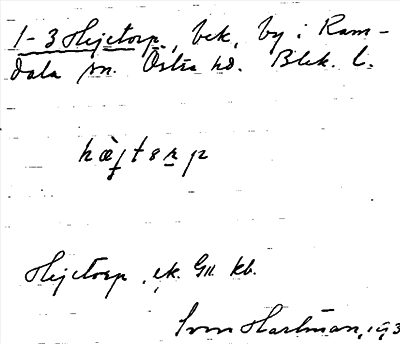 1-3 Hejetorp, bek, by i Ram-
dala sn. Östra hd. Blek. l.
Hejetorp, ek. GII kb.
Sven Hartman,